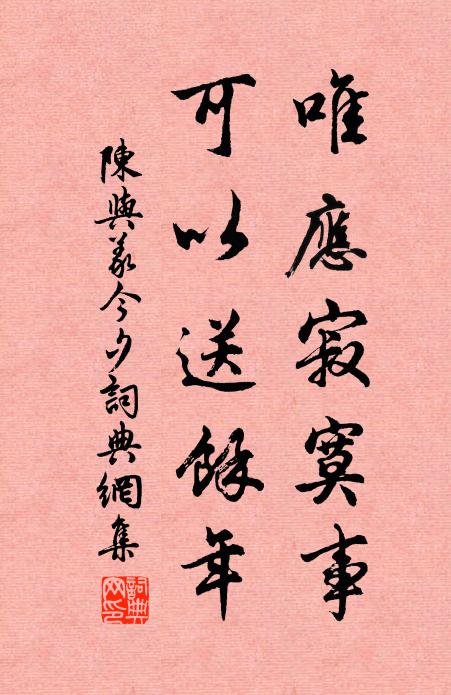 唯應寂寞事
可以送餘年
陳與義今夕詞典網集
詞典網印